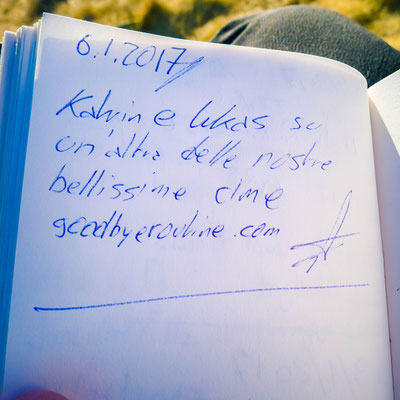 6.1.2017
Katrin e Lukas su
un'altra delle nostre
bellissime cime
goodbyeroutine.com